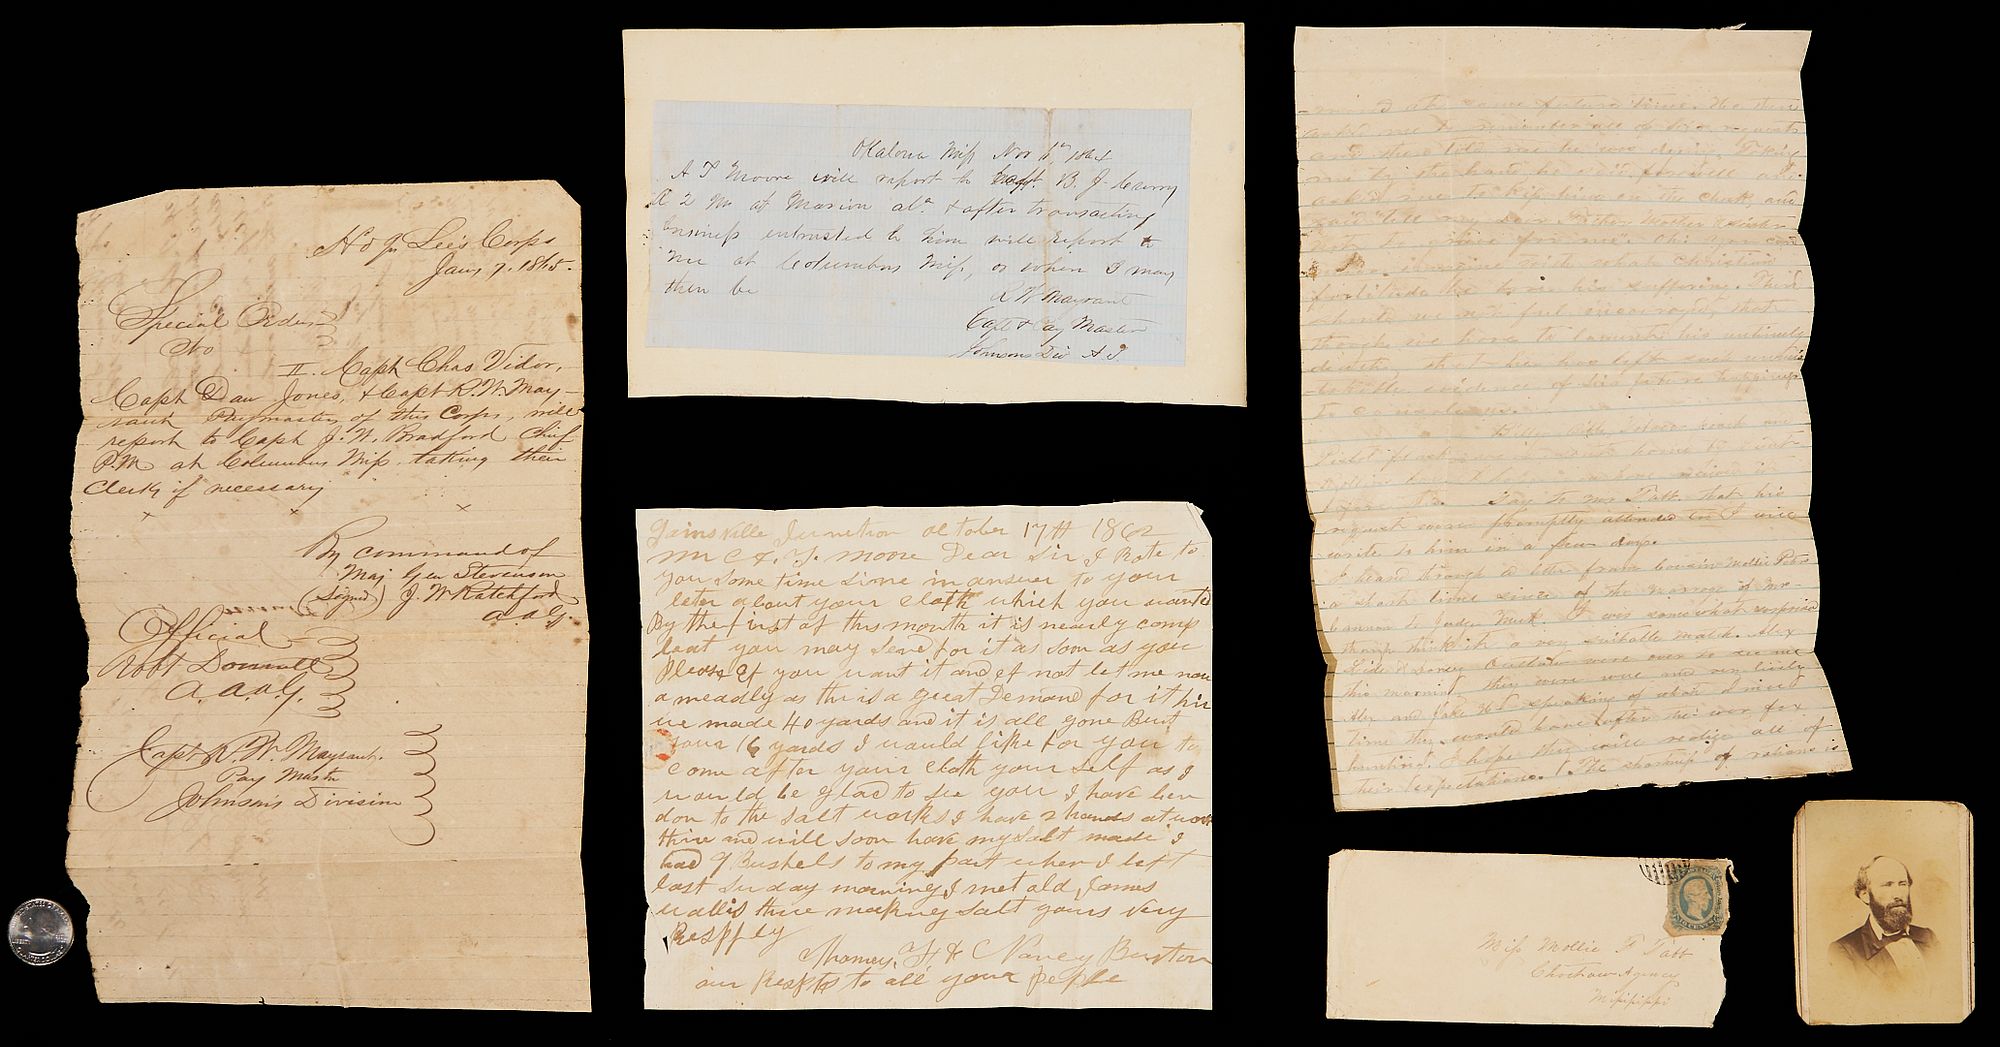 Hd Qrs Lee's Corps
Jany 7, 1865.
Special Orders
No
II. Capt Chas Vidor,
Capt Dan Jones, & Capt R. W. May-
rant Paymasters of this Corps, will
report to Capt J. N. Bradford Chief
P.M. at Columbus Miss. taking their
Clerks if necessary
x x x
By command of
Maj Gen Stevenson
(Signed) J. W. Ratchford
A A G.
Official
Robt
A. A. A. G.
Capt R. W. Mayrant.
Pay Master
Johnson's Division
Okalona Miss Nov 1st, 1864
A T Moore will report to Capt. B. J.
at Marion Ala & after transacting
business entrusted to him will report to
me at Columbus Miss, or when I may
then be
R W Mayrant
Capt & Pay Master
Johnsons Div A. T.
Gainsville Junction october 17th 1862
Mr C & T. Moore Dear Sir I Rote to
you some time sinse in answer to your
leter about your cloth which you wanted
By the first of this month it is nearly comp
leat you may Send for it as soon as you
Please if you want it and if not let me now
ameadly as thr is a great Demand for it hir
we made 40 yards and it is all gone But
your 16 yards I would like for you to
come after your cloth your Self as I
would be glad to see you I have ben
don to the salt works I have 2 hands at work
thire and will soon have my salt made I
had 9 Bushels to my part when I left
last Sunday morning I met old James
Wallis thire making salt yours very
Respfly
Thomas, H & C Nancy Burton
our Respts to all your people
at some future time. He then
asked me to remember all of his requests
and then told me he was dying. Taking
me by the hand he said farewell and
asked me to kiss him on the cheek, and
said "tell my dear Father Mother & Sister
not to grieve for me". Oh! you can
imagine with what Christian
fortitude he bore his suffering. Then
should we not feel encouraged, that
though we have to lament his untimely
death, that he has left such
evidence of his future happiness
to console us.
Say to Mr Tabb that his
request were promptly attended to I will
write to him in a few days.
I heard through a letter from Cousin Mollie
a short time since of the marriage of Mr
Cannon to I was somewhat surprised
though think it a very suitable match. Alex
were over to see me
this morning they were well and very lively
Alex and Jake speaking of what a nice
time they would have after the war fox
hunting. I hope they will realize all of
their expectations. The shortness of rations is
Miss Mollie F Tabb
Choctaw Agency
Mississippi